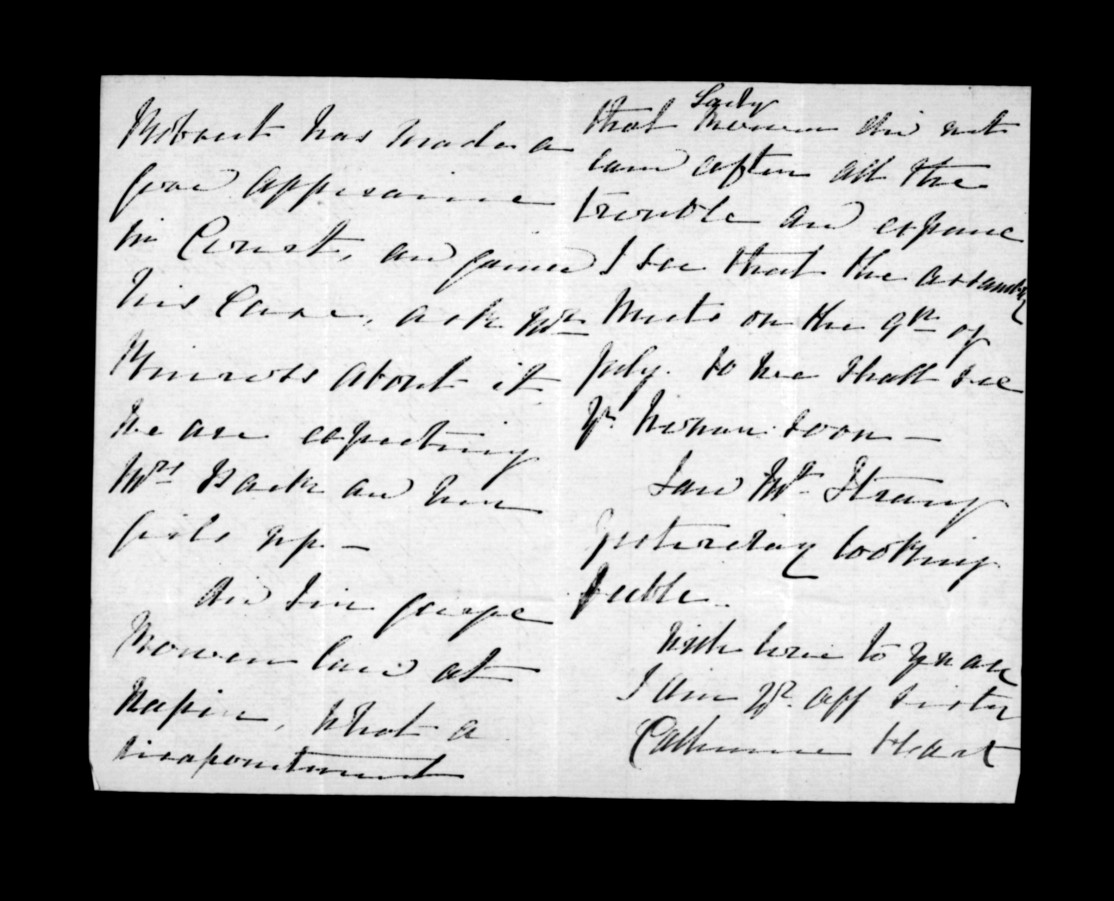 Robert has made a
good appearance
in Court, and gained
his Case, ask Mr
about it
We are expecting
Mrs and her
girls up —
Did Sir George
Bowen land at
Napier, what a
disapointment
that Lady Bowen did not
land after all the
trouble and expence
I see that the assembly
Meets on the 9th of
July. so we shall see
soon —
Saw Mr Strang
yesterday looking
feeble.
With love to you all
I am Yr. aff sister
Catherine Hart